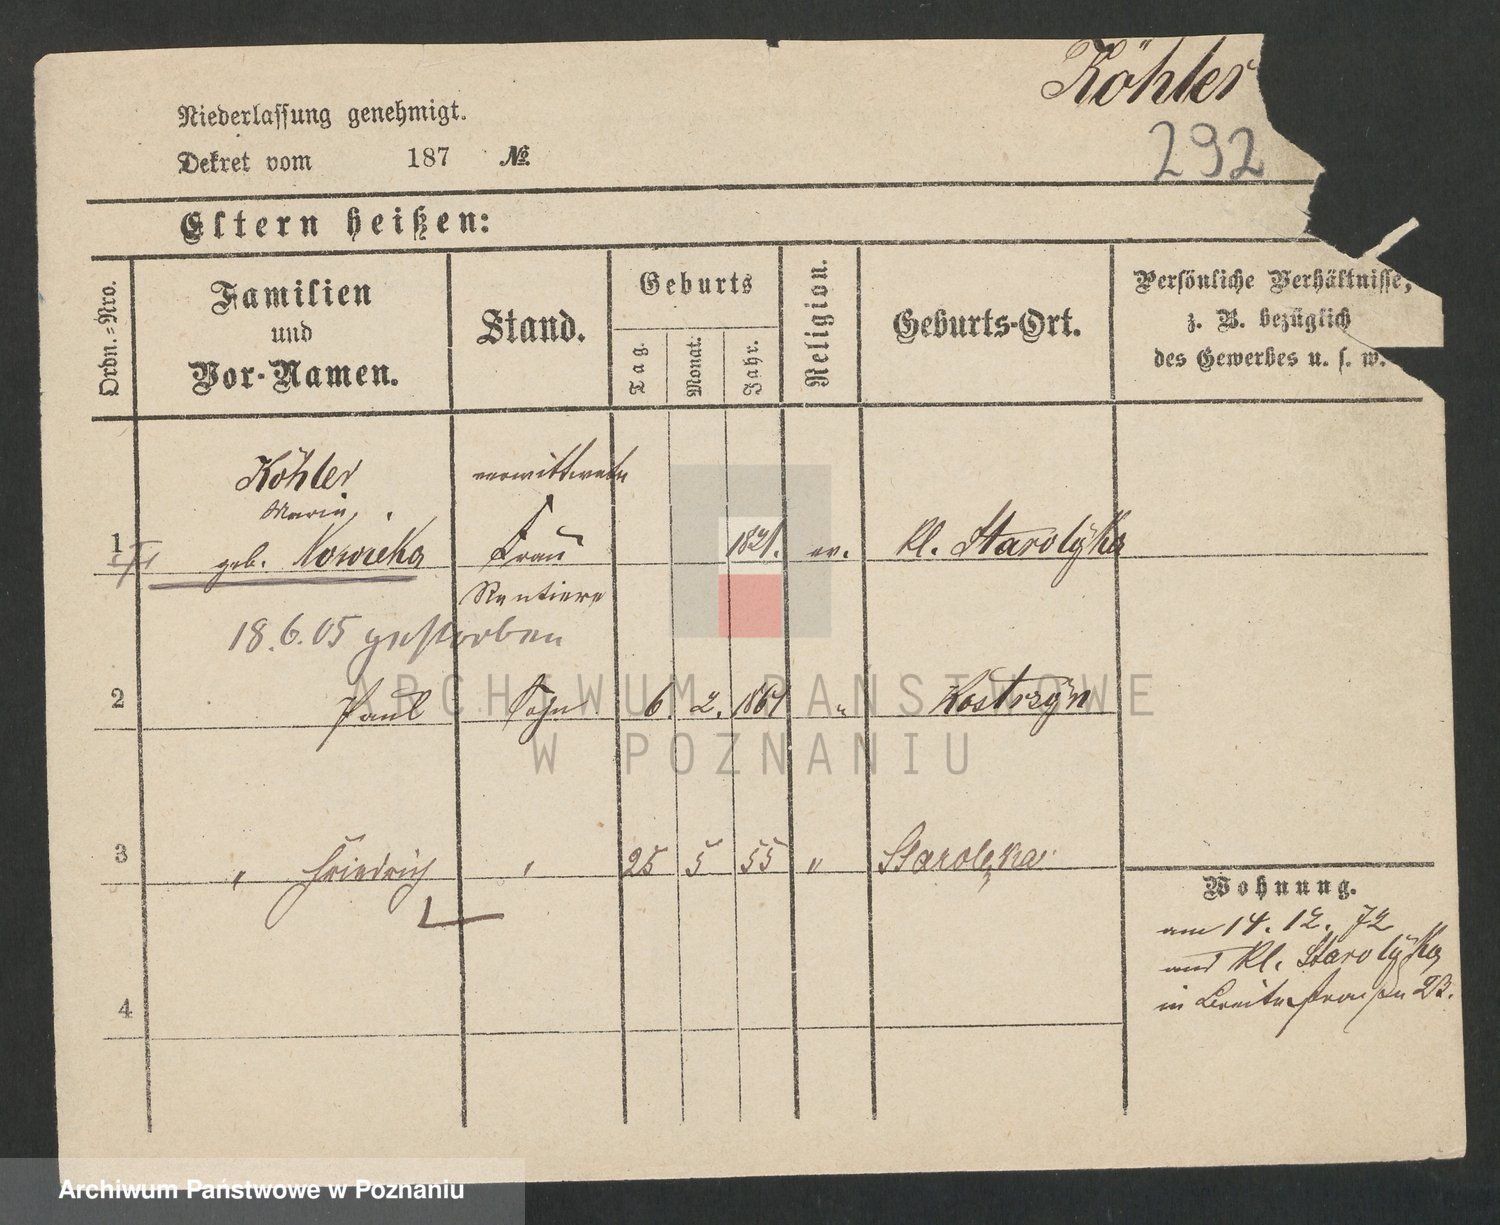 Köhler
292
Niederlassung genehmigt.
Dekret vom 187 №
Eltern heißen:
Ordn.=Nro.
Familien
und
Vor-Namen.
Stand.
Geburts
Tag.
Monat.
Jahr.
Religion.
Geburts-Ort.
Persönliche Verhältnisse,
z. B. bezüglich
des Gewerbes u. s. w.
Köhler verwittwete
Marie
1 geb. Frau 1821. ev. kl. Starolęka
Rentiere
18.6.05 gestorben
2 Paul Sohn 6. 2. 1861 " Kostrzyn
3 " Friedrich " 25 5 55 " Starolęka
Wohnung.
am 14. 12. 72
aus kl. Starolęka
in Breitestraße 23.
4
ARCHIWUM PAŃSTWOWE
W POZNANIU
Archiwum Państwowe w Poznaniu